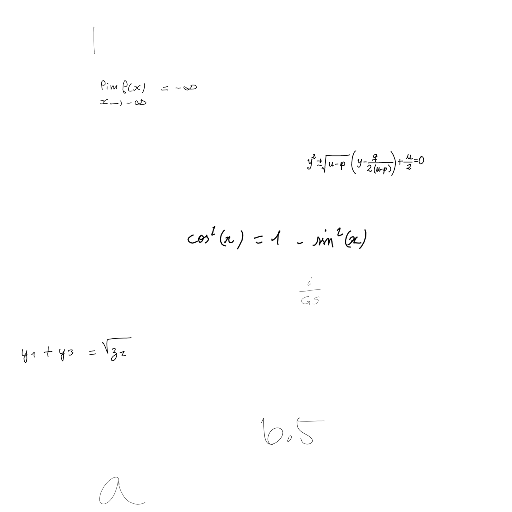 |
lim f(x) = -∞
x→-∞
y² ± √(u-p) (y - q/(2(u-p))) + u/2 = 0
cos²(x) = 1 - sin²(x)
i/G5
y₁ + y₃ = √z₂
6.5
a